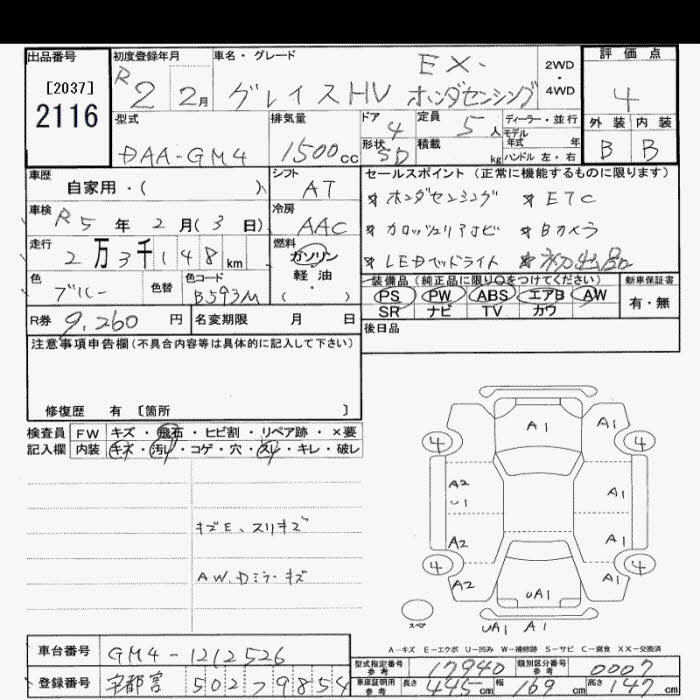 出品番号
[2037]
2116
初度登録年月
R2 2月
車名・グレード
EX.
グレイスHV ホンダセンシング
2WD
・
4WD
評価点
4
外装 内装
B B
型式
DAA-GM4
排気量
1500cc
ドア
4
形状
SD
定員
5人
積載
kg
ディーラー・並行
モデル
年式 年
ハンドル 左・右
車歴
自家用・( )
シフト
AT
車検
R5年2月(3日)
冷房
AAC
走行
2万3千148km
燃料
ガソリン
軽・油
( )
色
ブルー
色替
色コード
B593M
R券 9,260円
名変期限 月 日
セールスポイント(正常に機能するものに限ります)
* ホンダセンシング * ETC
* カロッツェリアナビ * Bカメラ
* LEDヘッドライト * 初出品
装備品(純正品に限り○をつけてください)
PS PW ABS エアB AW
SR ナビ TV カワ
新車保証書
有・無
後日品
注意事項申告欄(不具合内容等は具体的に記入して下さい)
修復歴 有 [箇所 ]
検査員
記入欄
FW キズ・飛石・ヒビ割・リペア跡・×要
内装 キズ・汚れ・コゲ・穴・スレ・キレ・破レ
キズE、スリキズ
AW、Dミラーキズ
A1
A1
4
4
A2
U1
A1
A2
A1
4
4
A2
UA1
A1
スペア
UA1 A1
A-キズ E-エクボ U-凹み W-補修跡 S-サビ C-腐食 XX-交換済
車台番号
GM4-1212526
登録番号
宇都宮 502 ラ 9854
型式指定番号
参考
17940
類別区分番号
参考
0007
車庫証明用
参考
長さ 445cm 幅 169cm 高さ 147cm